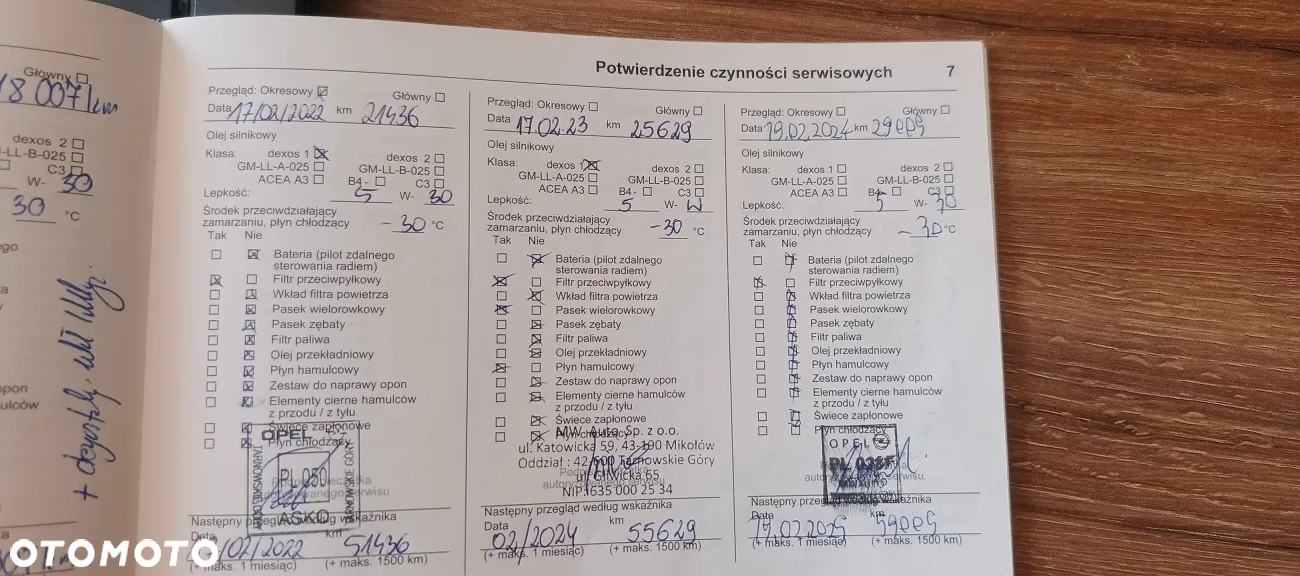 Główny
18 007 km
dexos 2
GM-LL-B-025
C3
W- 30
30 °C
+ dezynf.
Potwierdzenie czynności serwisowych 7
Przegląd: Okresowy Główny
Data 17/02/2022 km 21436
Olej silnikowy
Klasa: dexos 1 dexos 2
GM-LL-A-025 GM-LL-B-025
ACEA A3 B4- C3
Lepkość: 5 W- 30
Środek przeciwdziałający
zamarzaniu, płyn chłodzący -30 °C
Tak Nie
Bateria (pilot zdalnego
sterowania radiem)
Filtr przeciwpyłkowy
Wkład filtra powietrza
Pasek wielorowkowy
Pasek zębaty
Filtr paliwa
Olej przekładniowy
Płyn hamulcowy
Zestaw do naprawy opon
Elementy cierne hamulców
z przodu / z tyłu
Świece zapłonowe
Płyn chłodzący
OPEL
PL 050
ASKO
TARNOWSKIE GÓRY
Następny przegląd według wskaźnika
Data km
/02/2022 51436
(+ maks. 1 miesiąc) (+ maks. 1500 km)
Przegląd: Okresowy Główny
Data 17.02.23 km 25629
Olej silnikowy
Klasa: dexos 1 dexos 2
GM-LL-A-025 GM-LL-B-025
ACEA A3 B4- C3
Lepkość: 5 W- W
Środek przeciwdziałający
zamarzaniu, płyn chłodzący -30 °C
Tak Nie
Bateria (pilot zdalnego
sterowania radiem)
Filtr przeciwpyłkowy
Wkład filtra powietrza
Pasek wielorowkowy
Pasek zębaty
Filtr paliwa
Olej przekładniowy
Płyn hamulcowy
Zestaw do naprawy opon
Elementy cierne hamulców
z przodu / z tyłu
Świece zapłonowe
Płyn chłodzący
MW Auto Sp. z o.o.
ul. Katowicka 59, 43-190 Mikołów
Oddział : 42-600 Tarnowskie Góry
ul. Gliwicka 65
autoryzowanego serwisu
NIP: 635 000 25 34
Następny przegląd według wskaźnika
Data km
02/2024 55629
(+ maks. 1 miesiąc) (+ maks. 1500 km)
Przegląd: Okresowy Główny
Data 19.02.2024 km
Olej silnikowy
Klasa: dexos 1 dexos 2
GM-LL-A-025 GM-LL-B-025
ACEA A3 B4- C3
Lepkość: 5 W- 30
Środek przeciwdziałający
zamarzaniu, płyn chłodzący -30 °C
Tak Nie
Bateria (pilot zdalnego
sterowania radiem)
Filtr przeciwpyłkowy
Wkład filtra powietrza
Pasek wielorowkowy
Pasek zębaty
Filtr paliwa
Olej przekładniowy
Płyn hamulcowy
Zestaw do naprawy opon
Elementy cierne hamulców
z przodu / z tyłu
Świece zapłonowe
Płyn chłodzący
OPEL
autoryzowanego serwisu
Następny przegląd według wskaźnika
Data km
19.02.2025
(+ maks. 1 miesiąc) (+ maks. 1500 km)
OTOMOTO